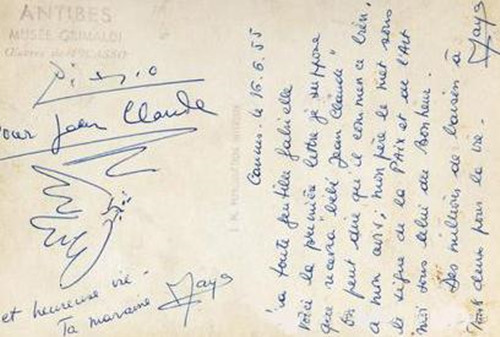 ANTIBES
MUSÉE GRIMALDI
Œuvres de PICASSO
Picasso
Pour Jean Claude
et heureuse vie -
Ta marraine Maya
Cannes. le 16.6.55
toute gentille
Voici la première lettre je suppose
que recevra bébé "Jean Claude"
On peut dire qu'il commence bien,
à mon avis; mon père le met sous
le signe de la PAix et de l'Art
moi sous celui du Bonheur.
Des milliers de baisers à
tous deux pour la vie -
Maya